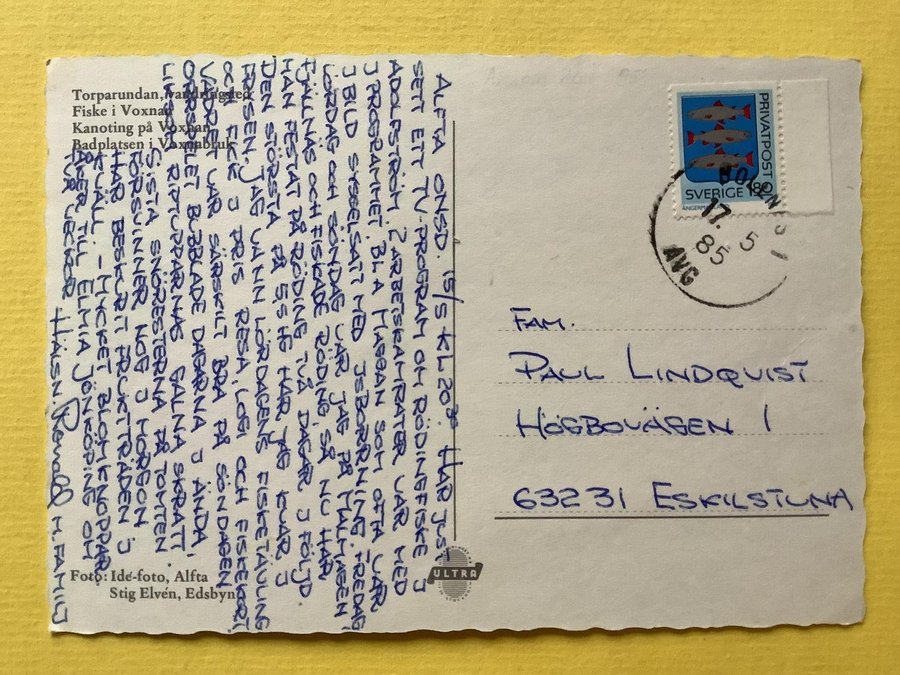 Torparundan, vandringsled
Fiske i Voxnan
Kanoting på Voxnan
Badplatsen i Voxnabruk
ALFTA ONSD. 15/5 KL 20³⁰ HAR JUST
SETT ETT TV-PROGRAM OM RÖDINGFISKE I
ADOLFSTRÖM 2 ARBETSKAMRATER VAR MED
I PROGRAMMET, BLA MAGGAN SOM OFTA VAR
I BILD SYSSELSATT MED ISBORRNING FREDAG
LÖRDAG OCH SÖNDAG VAR JAG PÅ MALMAGEN
FJÄLLNÄS OCH FISKADE RÖDING SÅ NU HAR
MAN FESTAT PÅ RÖDING TVÅ DAGAR I FÖLJD
DEN STÖRSTA PÅ 55 HG HAR JAG KVAR I
FRYSEN. JAG VANN LÖRDAGENS FISKETÄVLING
OCH FICK I PRIS RESA, LOGI OCH FISKEKORT.
VÄDRET VAR SÄRSKILT BRA PÅ SÖNDAGEN
ORRSPELET BUBBLADE DAGARNA I ÄNDA
LIKSÅ RIPTUPPARNAS GALNA SKRATT
SISTA SNÖRESTERNA PÅ TOMTEN
FÖRSVINNER NOG I MORGON
HAR BESKURIT FRUKTTRÄDEN I
KVÄLL - MYCKET BLOMKNOPPAR
ÅKER TILL ELMIA JÖNKÖPING OM
TVÅ VECKOR HÄLSN. Ronald M. FAMILJ
Foto: Ide-foto, Alfta
Stig Elvén, Edsbyn
ULTRA
PRIVATPOST
SVERIGE 1.80
BOLLNÄS 1
17. 5
85
AVG
FAM.
PAUL LINDQVIST
HÖGBOVÄGEN 1
63231 ESKILSTUNA